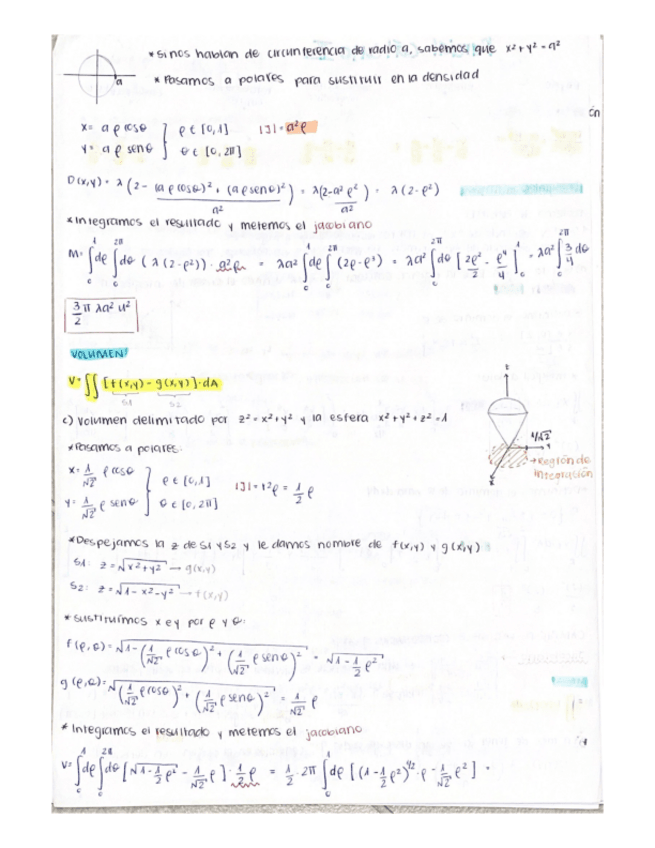 * Si nos hablan de circunferencia de radio a, sabemos que x² + y² = a²
a
* Pasamos a polares para sustituir en la densidad
ón
x = a ρ cosθ } ρ ∈ [0,1] |J| = a²ρ
y = a ρ senθ } θ ∈ [0, 2π]
D(x,y) = λ (2 - (a ρ cosθ)² + (a ρ senθ)² / a²) = λ(2 - a² ρ² / a²) = λ (2 - ρ²)
* Integramos el resultado y metemos el jacobiano
M = ∫₀¹ dρ ∫₀^2π dθ (λ (2 - ρ²)) · a²ρ = λa² ∫₀¹ dρ ∫₀^2π (2ρ - ρ³) = λa² ∫₀^2π dθ [2ρ²/2 - ρ⁴/4]₀¹ = λa² ∫₀^2π 3/4 dθ
3/2 π λa² u²
VOLUMEN:
V = ∬ [f(x,y) - g(x,y)] · dA
S1 S2
c) Volumen delimitado por z² = x² + y² y la esfera x² + y² + z² = 1
* Pasamos a polares:
x = 1/√2 ρ cosθ } ρ ∈ [0,1] |J| = r²ρ = 1/2 ρ
y = 1/√2 ρ senθ } θ ∈ [0, 2π]
1/√2
→ Región de
integración
* Despejamos la z de S1 y S2 y le damos nombre de f(x,y) y g(x,y) :
S1: z = √x² + y² → g(x,y)
S2: z = √1 - x² - y² → f(x,y)
* Sustituimos x e y por ρ y θ:
f(ρ,θ) = √1 - (1/√2 ρ cosθ)² + (1/√2 ρ senθ)² = √1 - 1/2 ρ²
g(ρ,θ) = √(1/√2 ρ cosθ)² + (1/√2 ρ senθ)² = 1/√2 ρ
* Integramos el resultado y metemos el jacobiano
V = ∫₀¹ dρ ∫₀^2π dθ [√1 - 1/2 ρ² - 1/√2 ρ] · 1/2 ρ = 1/2 · 2π ∫₀¹ dρ [(1 - 1/2 ρ²)^1/2 · ρ - 1/√2 ρ²] =